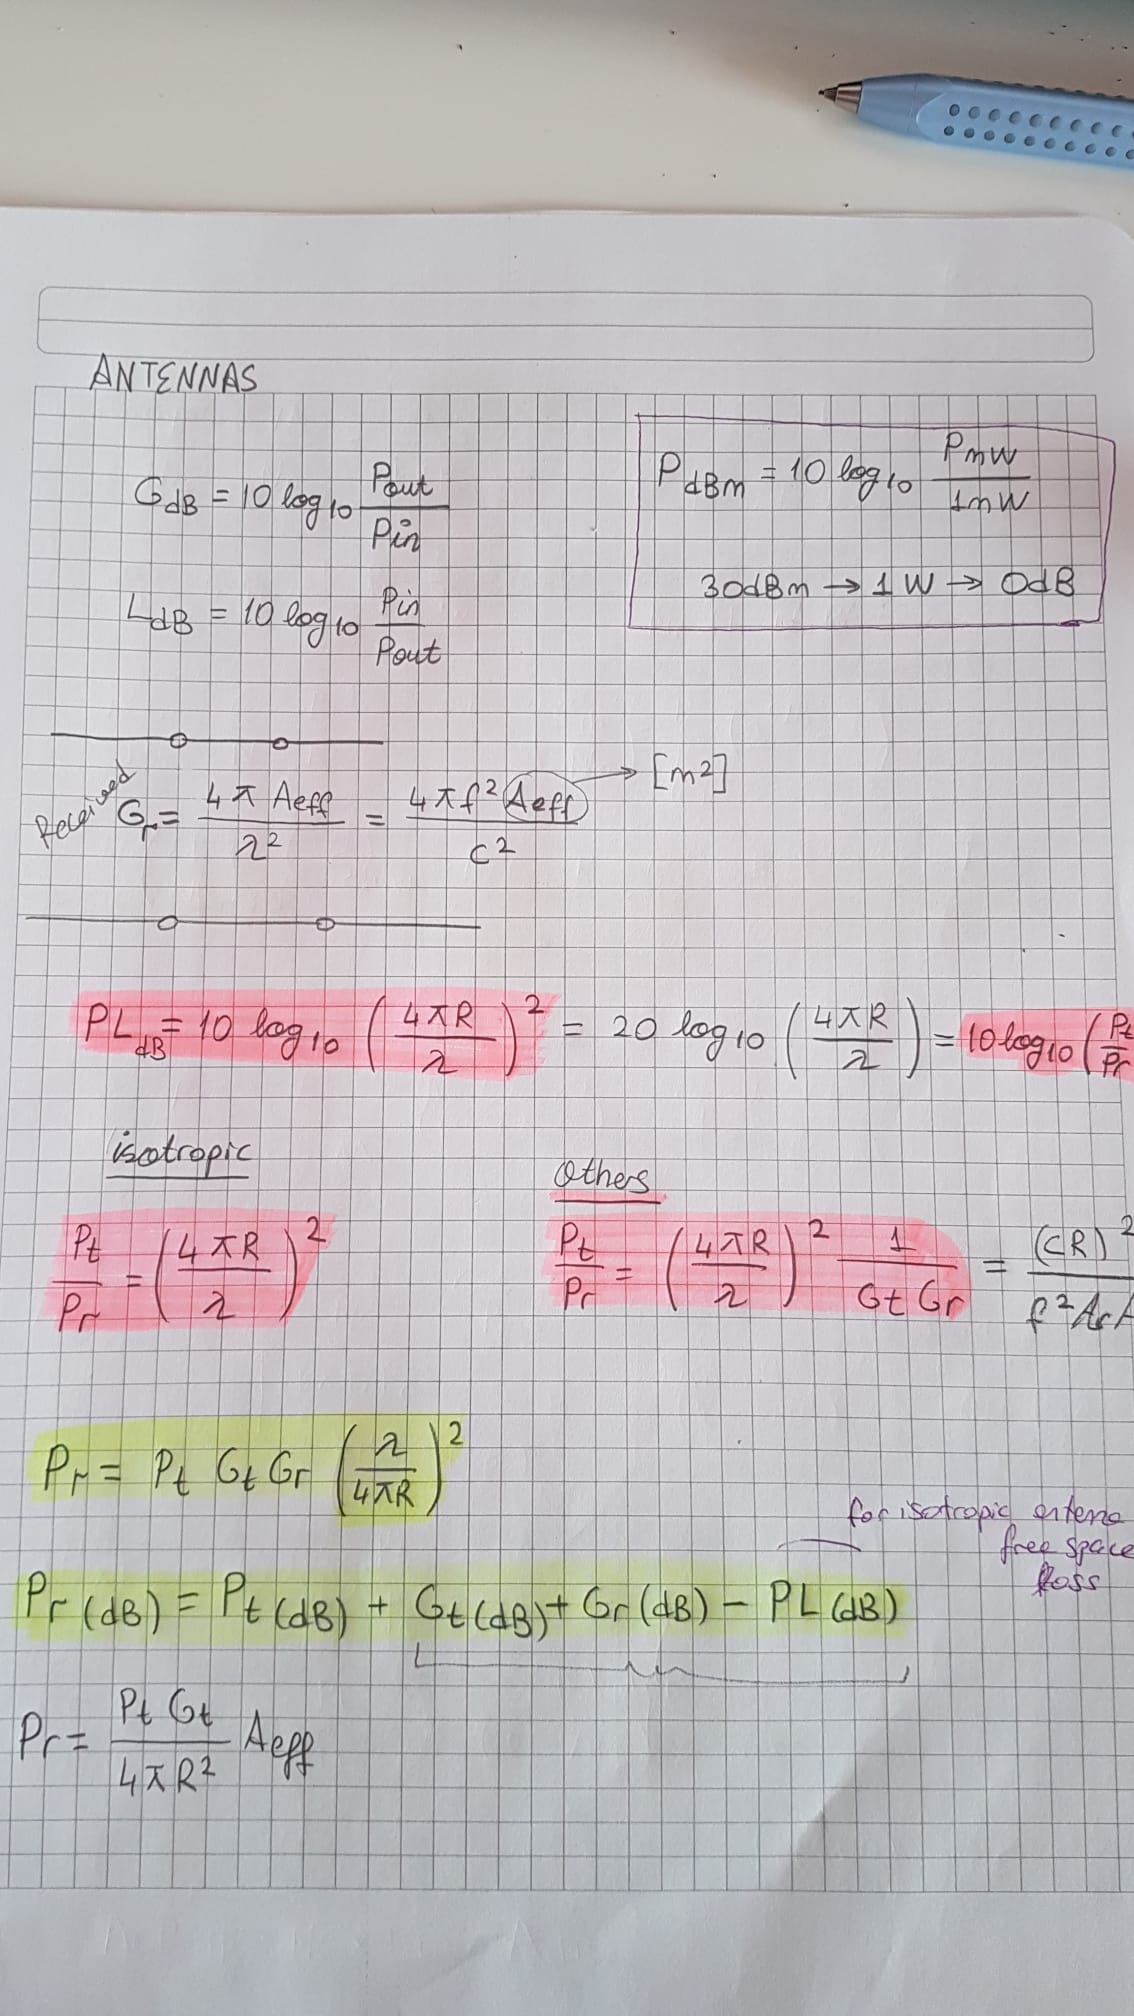 ANTENNAS
G_dB = 10 log10 Pout/Pin
P_dBm = 10 log10 PmW/1mW
30dBm → 1 W → 0dB
L_dB = 10 log10 Pin/Pout
Received Gr = 4π Aeff/λ² = 4πf² Aeff/c² → [m²]
PL_dB = 10 log10 (4πR/λ)² = 20 log10 (4πR/λ) = 10 log10 (Pt/Pr
isotropic
Others
Pt/Pr = (4πR/λ)²
Pt/Pr = (4πR/λ)² 1/Gt Gr = (cR)²/f² Ar
Pr = Pt Gt Gr (λ/4πR)²
for isotropic antena
free space
loss
Pr (dB) = Pt (dB) + Gt (dB) + Gr (dB) − PL (dB)
Pr = Pt Gt/4πR² Aeff